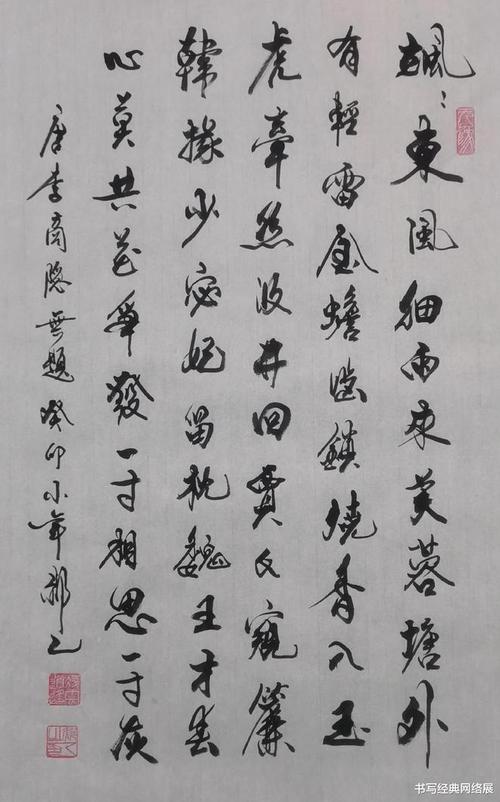 颯〻東風細雨來芙蓉塘外
有輕雷金蟾齧鎖燒香入玉
虎牽絲汲井回賈氏窺簾
韓掾少宓妃留枕魏王才春
心莫共花爭發一寸相思一寸灰
唐李商隱無題癸卯小年
书写经典网络展